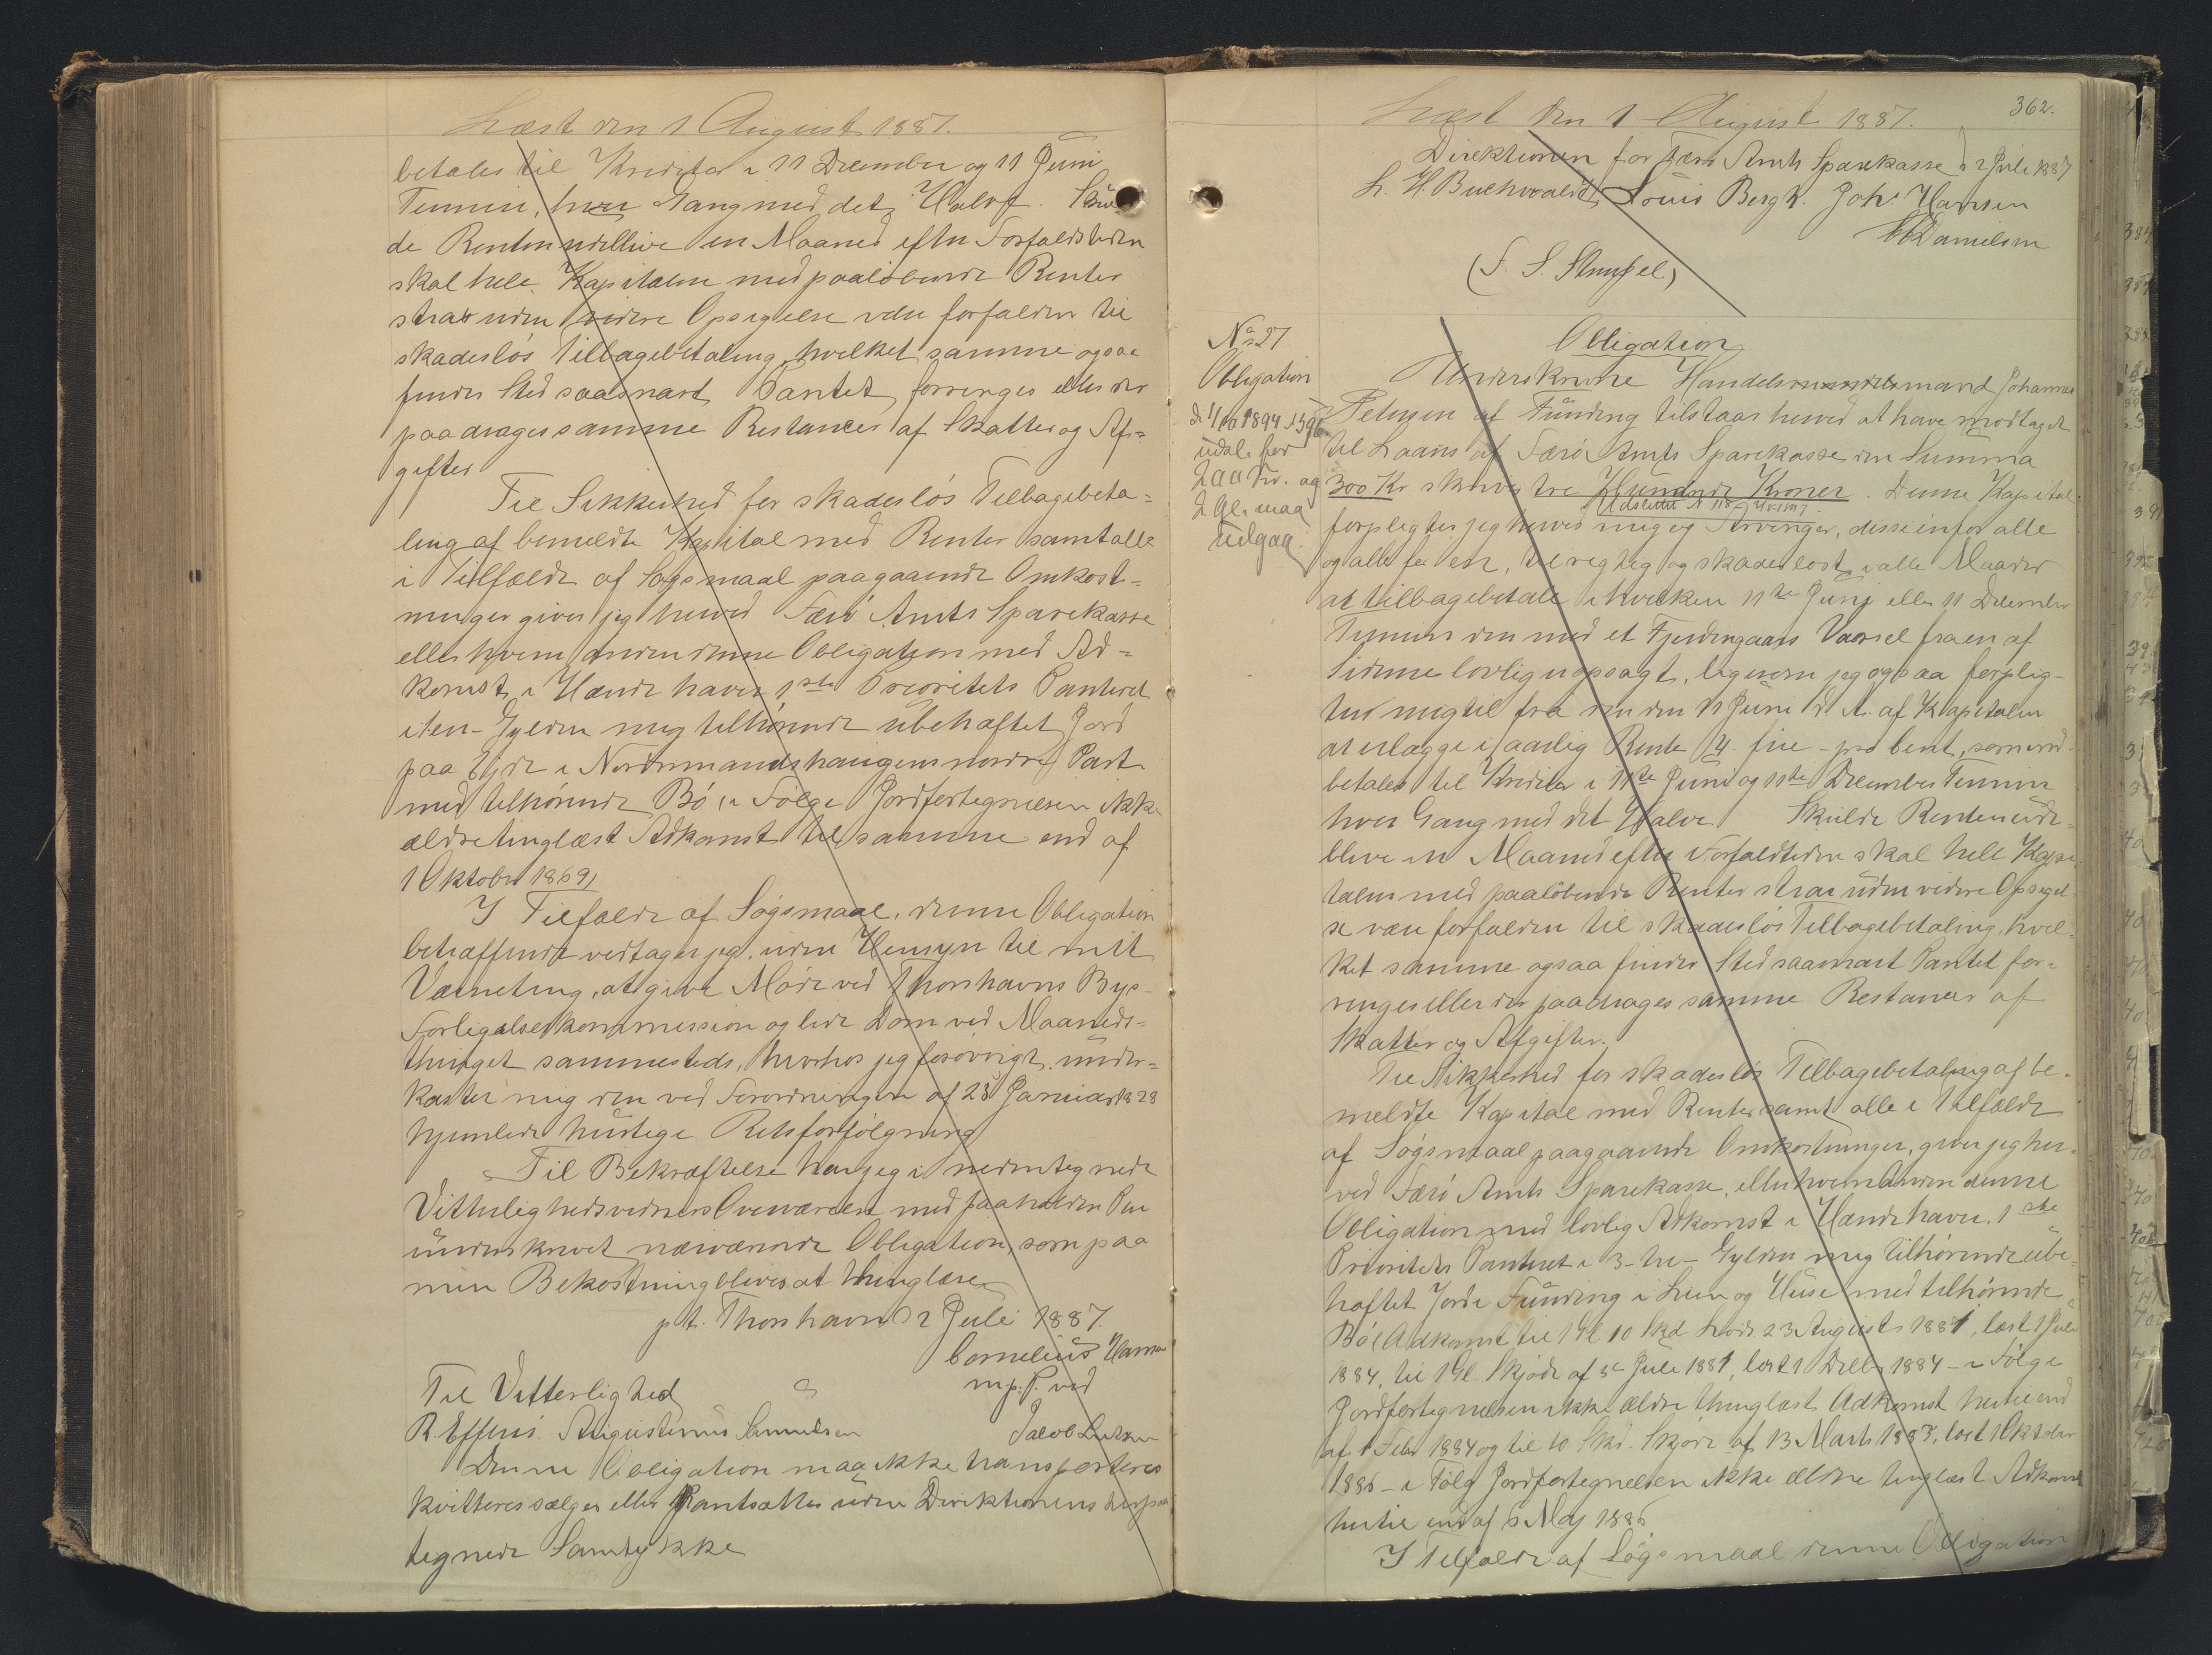 Læst den 1 August 1887.
betales til Kreditor i 11 December og 11 Juni
Termin, hver Gang med det Halve. Skul-
de Renten udeblive en Maaned efter Forfaldstiden
skal hele Kapitalen med paaløbende Renter
strax uden videre Opsigelse være forfalden til
skadesløs Tilbagebetaling, hvilket samme ogsaa
finder Sted saasnart Pantet forringes eller der
paadrages samme Restancer af Skatter og Af-
gifter
Til Sikkerhed for skadesløs Tilbagebeta-
ling af bemeldte Kapital med Renter samt alle
i Tilfælde af Søgsmaal paagaaende Omkost-
ninger giver jeg herved Færø Amts Sparekasse
eller hvem anden denne Obligation med Ad-
komst i Hænde haver 1ste Prioritets Panteret
i en Gylden mig tilhørende ubehæftet Jord
paa Ejde i Nordmandshaugens nordre Part
med tilhørende Bø (i Følge Jordfortegnelsen ikke
ældre tinglæst Adkomst til samme end af
1 Oktober 1869)
I Tilfælde af Søgsmaal, denne Obligation
betræffende vedtager jeg, uden Hensyn til mit
Værneting, at give Møde ved Thorshavns Byes
Forligelseskommission og lide Dom ved Maaneds-
thinget sammesteds, hvorhos jeg forøvrigt under-
kaster mig den ved Forordningen af 28 Januar 1828
hjemlede hurtige Retsforfølgning
Til Bekræftelse har jeg i nedentegnede
Vitterlighedsvidners Overværelse med paaholden Pen
underskrevet nærværende Obligation, som paa
min Bekostning bliver at thinglæse
pt. Thorshavn d 2 Juli 1887.
Cornelius Hansen
Til Vitterlighed m. p. P. ved
R. Effersø Augustinus Samuelsen Jacob Lützen
Denne Obligation maa ikke transporteres
kvitteres sælges eller Pantsættes uden Direktionens herpaa
tegnede Samtykke
Læst den 1 August 1887. 362.
Direktionen for Færø Amts Sparekasse d 2 Juli 1887
L. H. Buchwaldt Louis Bergh. Joh. Hansen
Danielsen
(F. S. Stempel)
No 27
Obligation
d. 1/10 1894
udsl. for
2 Gl. maa
udgaa.
Obligation
Underskrevne Handelsmand Johannes
Petersen af Funding tilstaar herved at have modtaget
til Laans af Færø Amts Sparekasse en Summa
300 Kr skriver tre Hundrede Kroner. Denne Kapital
forpligter jeg herved mig og Arvinger, disse en for alle
og alle for een, til rigtig og skadesløst i alle Maader
at tilbagebetale i hvilken 11te Juni eller 11 December
Termin den med et Fjerdingaars Varsel fra en af
Siderne lovlig er opsagt, ligesom jeg ogsaa forplig-
ter mig til fra den 11 Juni d. A. af Kapitalen
at erlægge i aarlig Rente 4 fire pro Cent, som ind-
betales til Kreditor i 11te Juni og 11te December Termin
hver Gang med det Halve. Skulde Renten ude-
blive en Maaned efter Forfaldstiden skal hele Kapi-
talen med paaløbende Renter strax uden videre Opsigel-
se være forfalden til skadesløs Tilbagebetaling, hvil-
ket samme ogsaa finder Sted saasnart Pantet for-
ringes eller der paadrages samme Restancer af
Skatter og Afgifter.
Til Sikkerhed for skadesløs Tilbagebetaling af be-
meldte Kapital med Renter samt alle i Tilfælde
af Søgsmaal paagaaende Omkostninger, giver jeg her-
ved Færø Amts Sparekasse, eller hvem Anden denne
Obligation med lovlig Adkomst i Hænde haver, 1ste
Prioritets Panteret i 3 tre Gylden mig tilhørende ube-
hæftet Jord i Funding i Lien og Huse med tilhørende
Bø (Adkomst til 1 Gl. 10 Skd Skjøde 23 August 1881, læst 1 Juli
1884, til 1 Gl. Skjøde af 5 Juli 1881, læst 1 Decbr 1884 - i Følge
Jordfortegnelsen ikke ældre thinglæst Adkomst hertil end
af 1 Febr 1884 og til 10 Skd. Skjøde af 13 Marts 1883, læst 1 Oktober
1886 - i Følge Jordfortegnelsen ikke ældre tinglæst Adkomst
hertil end af 6 Maj 1886
I Tilfælde af Søgsmaal denne Obligation